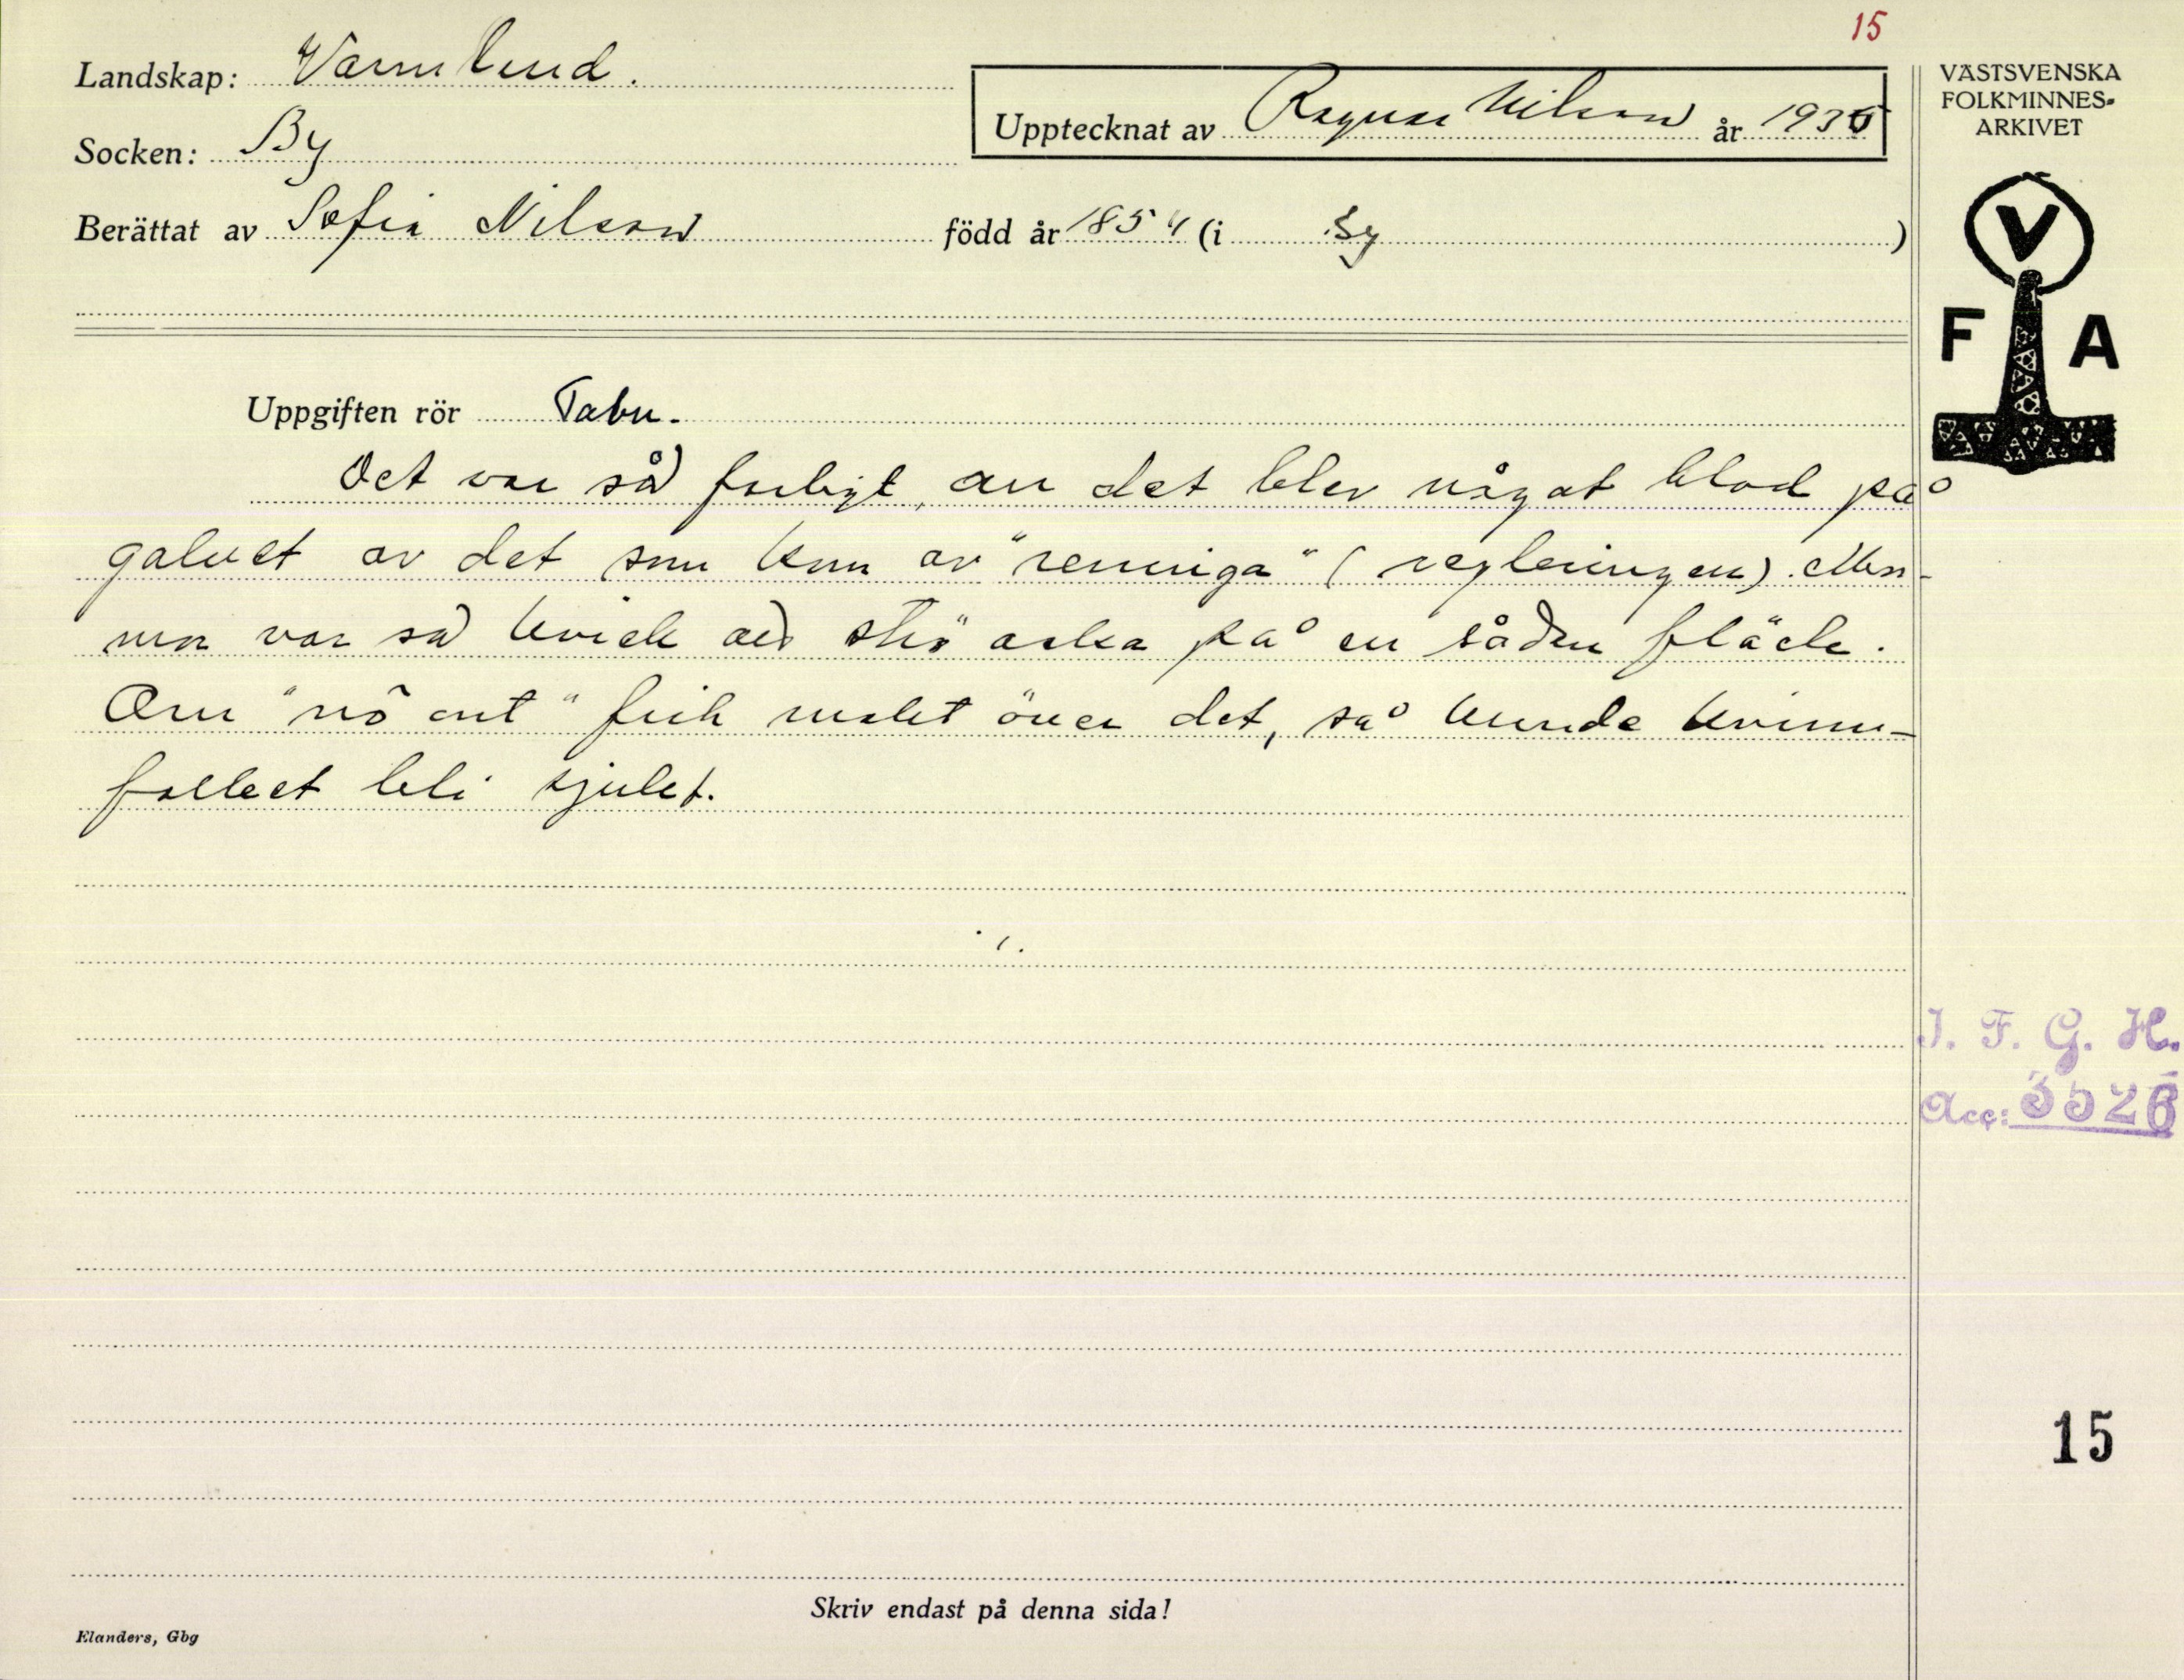 15
Landskap: Värmland.
Upptecknat av Ragnar Nilsson år 1935
Socken: By
Berättat av Sofia Nilsson född år 1854 (i By)
VÄSTSVENSKA
FOLKMINNES-
ARKIVET
V
F A
Uppgiften rör Tabu.
Det var så farligt, om det blev något blod på
golvet av det som kom av "renniga" (regleringen). Män-
ner var så kvick att strö aska på en sådan fläck.
Om "nô ont" fick makt över det, så kunde kvinn-
folket bli sjukt.
I. F. G. H.
Acc: 3526
15
Skriv endast på denna sida!
Elanders, Gbg